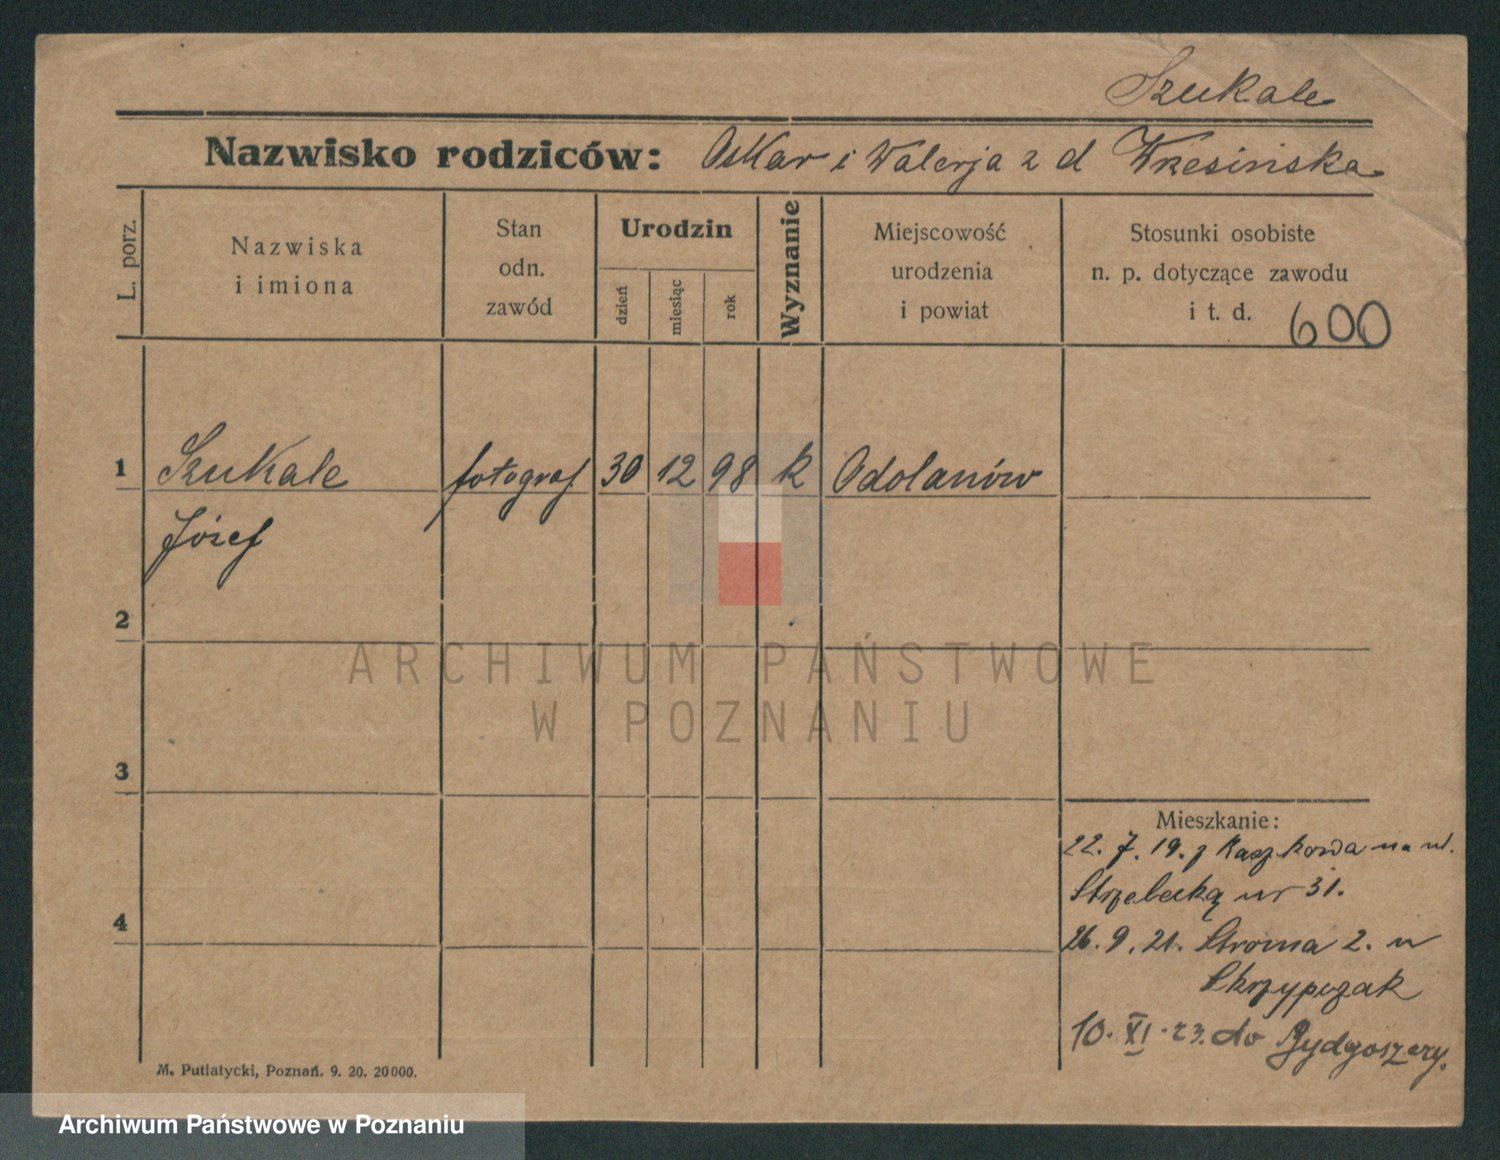 Szukale
Nazwisko rodziców: Oskar i Walerja z d Wrzesińska
L. porz.
Nazwiska
i imiona
Stan
odn.
zawód
Urodzin
dzień
miesiąc
rok
Wyznanie
Miejscowość
urodzenia
i powiat
Stosunki osobiste
n. p. dotyczące zawodu
i t. d. 600
1 Szukale fotograf 30 12 98 k Odolanów
Józef
2
ARCHIWUM PAŃSTWOWE
W POZNANIU
3
Mieszkanie:
22. 7. 19. z Raszkowa na ul.
Strzelecką nr 31.
4
26. 9. 21. Stroma 2. u
Skrzypczak
10. XI. 23. do Bydgoszczy.
M. Putiatycki, Poznań. 9. 20. 20000.
Archiwum Państwowe w Poznaniu